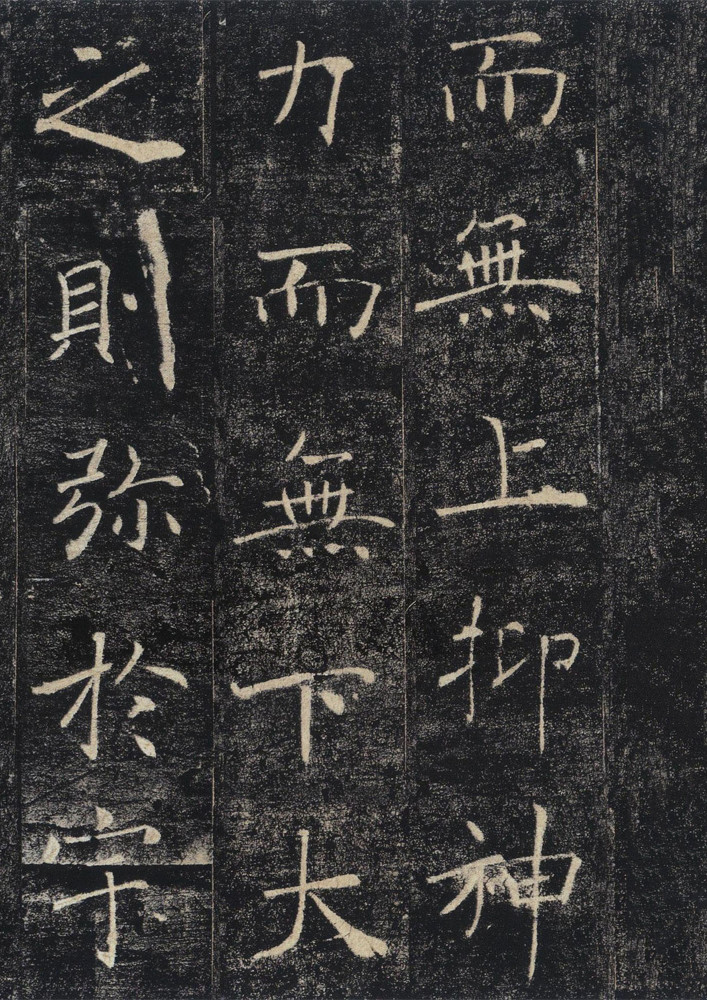 而無上抑神
力而無下大
之則弥於宇